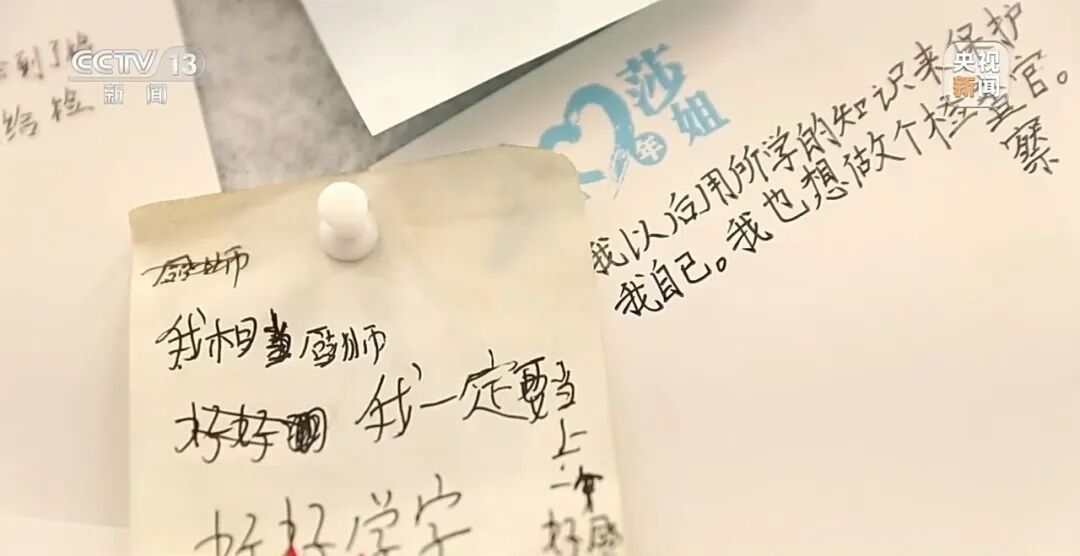 CCTV 13
新闻
央视
新闻
到了
给检
莎姐
年
我以后用所学的知识来保护
我自己。我也想做个检察官。
察
厨师
我相当厨师
好好
我一定要当
上
一个
好厨
好好学字